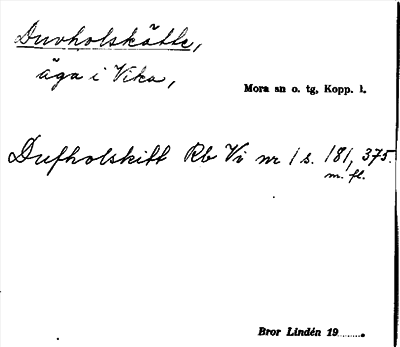 Duvholskätte,
äga i Vika,
Mora sn o. tg, Kopp. l.
Dufholskitt Rb Vi nr 1 s. 181, 375.
m. fl.
Bror Lindén 19........